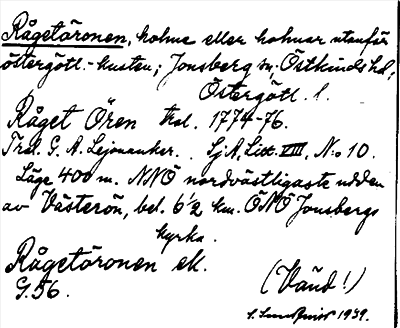 Rågetöronen, holme eller holmar utanför
östergötl.-kusten; Jonsberg sn, Östkinds hd,
Östergötl. l.
Råget Ören Kal. 1774-76.
Tral. G. A. Lejonanker. SjA, Litt. VIII, N:o 10.
Läge 400 m. NNÖ nordvästligaste udden
av Västerön, bel. 6 1/2 km. ÖNÖ Jonsbergs
kyrka.
Rågetöronen ek.
G.56. (Vänd!)
S. Lundqvist 1939.